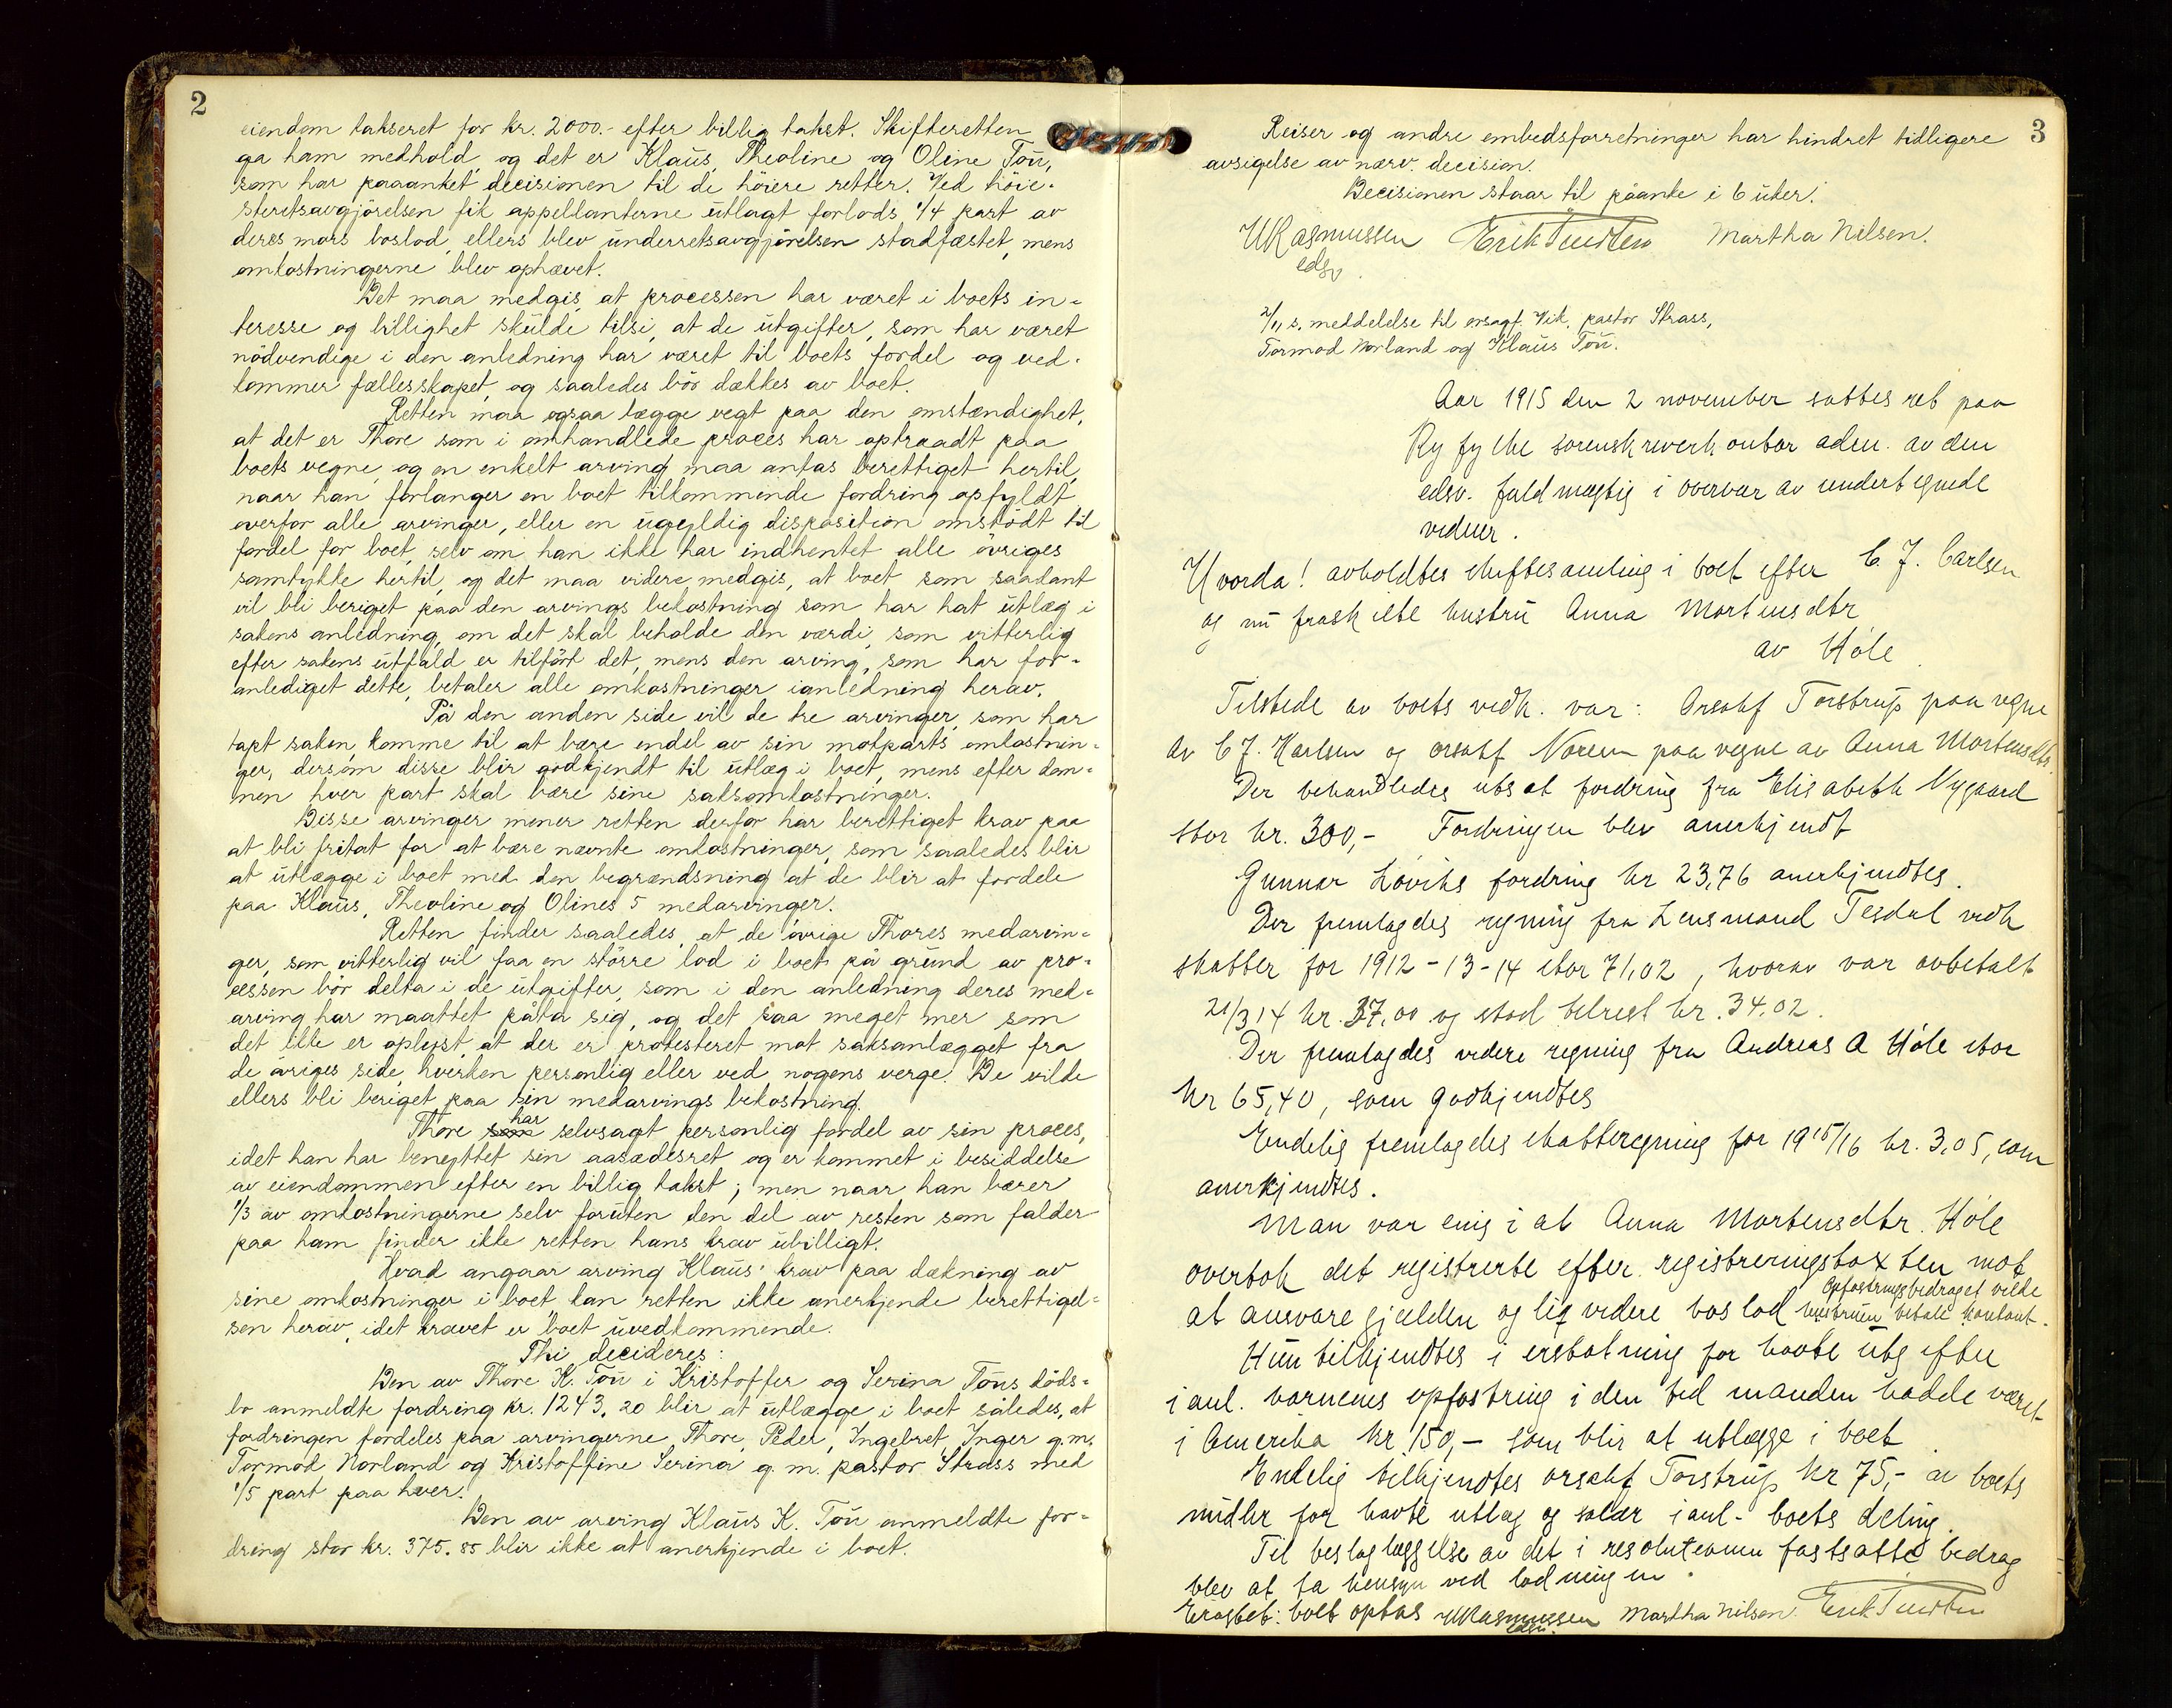 2
eiendom takseret for kr. 2000.- efter billig takst. Skifteretten
ga ham medhold, og det er Klaus, Theoline og Oline Tou,
som har paaanket decisionen til de höiere retter. Ved höie-
steretsavgjörelsen fik appellanterne utlagt forlods 1/4 part av
deres mors boslod, ellers blev underretsavgjörelsen stadfæstet, mens
omkostningerne blev ophævet.
Det maa medgis, at processen har været i boets in-
teresse og billighet skulde tilsi, at de utgifter, som har været
nödvendige i den anledning har været til boets fordel og ved-
kommer fællesskapet, og saaledes bör dækkes av boet.
Retten maa ogsaa lægge vegt paa den omstændighet,
at det er Thore som i omhandlede proces har optraadt paa
boets vegne, og en enkelt arving maa antas berettiget hertil,
naar han forlanger en boet tilkommende fordring opfyldt
overfor alle arvinger, eller en ugyldig disposition omstödt til
fordel for boet, selv om han ikke har indhentet alle övriges
samtykke hertil, og det maa videre medgis, at boet som saadant
vil bli beriget paa den arvings bekostning som har hat utlæg i
sakens anledning, om det skal beholde den værdi, som vitterlig
efter sakens utfald er tilfört det, mens den arving, som har for-
anlediget dette, betaler alle omkostninger ianledning herav.
På den anden side vil de tre arvinger, som har
tapt saken, komme til at bære endel av sin motparts omkostnin-
ger, dersom disse blir godkjendt til utlæg i boet, mens efter dom-
men hver part skal bære sine saksomkostninger.
Disse arvinger mener retten derfor har berettiget krav paa
at bli fritat for at bære nævnte omkostninger, som saaledes blir
at utlægge i boet med den begrændsning at de blir at fordele
paa Klaus, Theoline og Olines 5 medarvinger.
Retten finder saaledes, at de övrige Thores medarvin-
ger, som vitterlig vil faa en större lod i boet på grund av pro-
cessen bör delta i de utgifter, som i den anledning deres med-
arving har maattet påta sig, og det saa meget mer som
det ikke er oplyst, at der er protesteret mot saksanlægget fra
de övriges side, hverken personlig eller ved nogens verge. De vilde
ellers bli beriget paa sin medarvings bekostning.
Thore som har selvsagt personlig fordel av sin proces,
idet han har benyttet sin aasædesret og er kommet i besiddelse
av eiendommen efter en billig takst; men naar han bærer
1/3 av omkostningerne selv foruten den del av resten som falder
paa ham finder ikke retten hans krav ubilligt.
Hvad angaar arving Klaus' krav paa dækning av
sine omkostninger i boet kan retten ikke anerkjende berettigel-
sen herav, idet kravet er boet uvedkommende.
Thi decideres:
Den av Thore K. Tou i Kristoffer og Serina Tous döds-
bo anmeldte fordring kr. 1243.20 blir at utlægge i boet således, at
fordringen fordeles paa arvingerne Thore, Peder, Ingebret, Inger g.m.
Tormod Norland og Kristoffine Serina g.m. pastor Strass med
1/5 part paa hver.
Den av arving Klaus K. Tou anmeldte for-
dring stor kr. 375.85 blir ikke at anerkjende i boet.
3
Reiser og andre embedsforretninger har hindret tidligere
avsigelse av nærv. decision.
Decisionen staar til påanke i 6 uker.
WRasmussen Erik Tendten Martha Nilsen.
edsv.
2/11 s. meddelelse til orsagf. Vik, pastor Strass,
Tormod Norland og Klaus Tou.
Aar 1915 den 2 november sattes ret paa
Ryfylke sorenskriverkontor adm. av den
edsv. fuldmægtig i overvær av undertegnede
vidner.
Hvorda! avholdtes skiftesamling i boet efter C. J. Carlsen
og nu fraskilte hustru Anna Mortensdtr
av Hóle
Tilstede av boets vedk. var: Orsakf Torstrup paa vegne
av C J. Karlsen og orsakf Noreen paa vegne av Anna Mortensdtr.
Der behandledes utsat fordring fra Elisabeth Nygaard
stor kr. 300,- Fordringen blev anerkjendt
Gunnar Loviks fordring kr 23,76 anerkjendtes.
Der fremlagdes regning fra Lensmand Tesdal vedk
skatter for 1912-13-14 stor 71,02, hvorav var avbetalt
21/3 14 kr. 37,00 og stod tilrest kr. 34.02.
Der fremlagdes videre regning fra Andreas A Hóle stor
kr 65,40, som godkjendtes
Endelig fremlagdes skatteregning for 1915/16 kr. 3,05, som
anerkjendtes.
Man var enig i at Anna Mortensdtr. Hóle
overtok det registrerte efter registreringstaxten mot
at ansvare gjælden og likvidere boslod Opfostringsbidraget vilde
hustruen betale kontant.
Hun tilkjendtes i erstatning for havte utgifter
i anl. barnenes opfostring i den tid manden hadde været
i Amerika kr 150,- som blir at utlægge i boet.
Endelig tilkjendtes orsakf Torstrup kr 75,- av boets
midler for havte utlæg og salær i anl. boets deling.
Til beslaglæggelse av det i resolutionen fastsatte bidrag
blev at ta hensyn ved lodningen.
boet optas WRasmussen Martha Nilsen Erik Tendten
edsv.